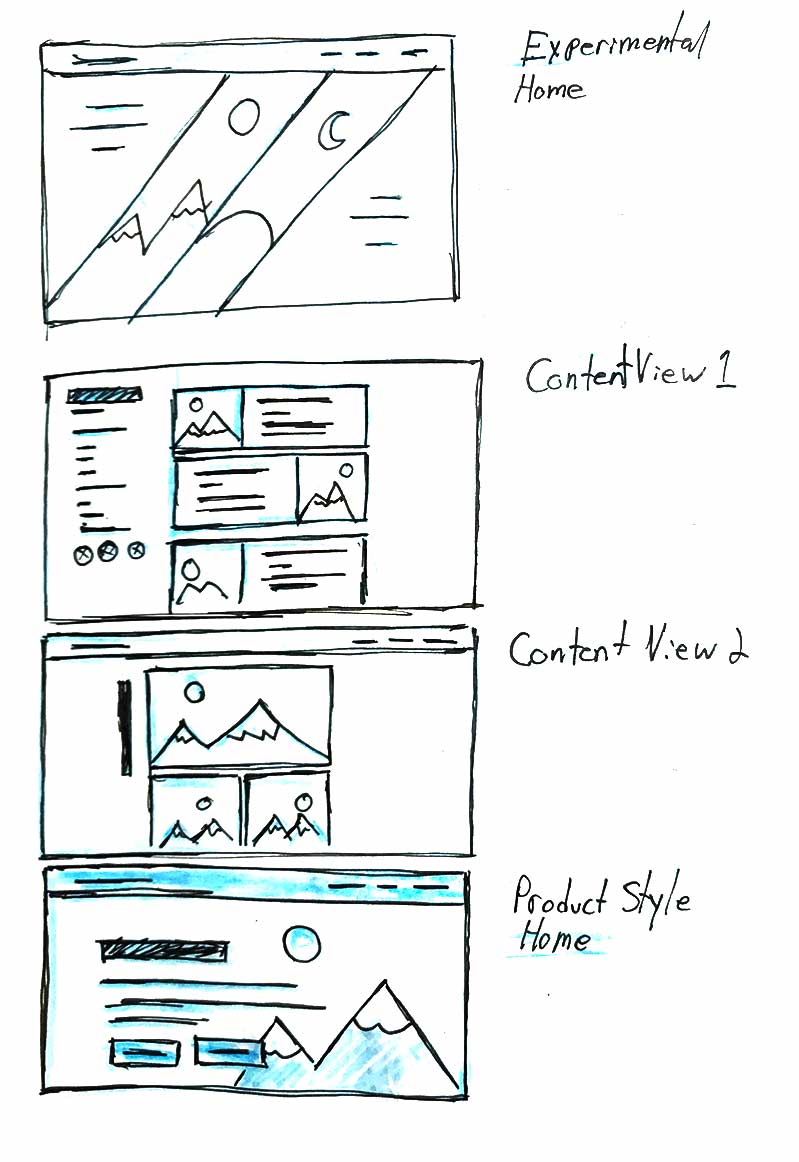 Experimental
Home
Content View 1
Content View 2
Product Style
Home